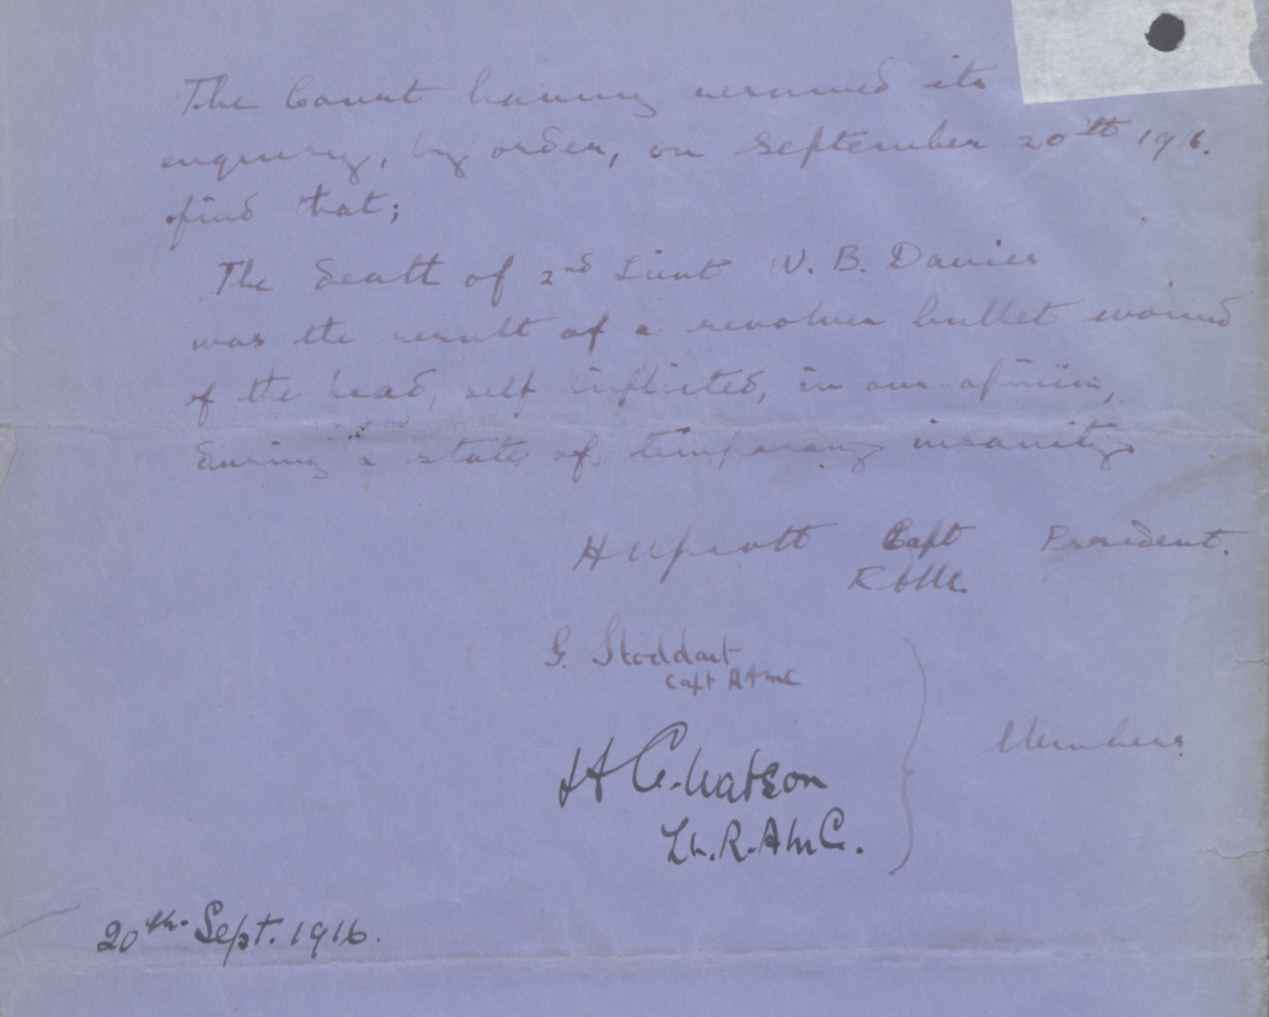 The Court having resumed its
enquiry, by order, on September 20th 1916.
find that;
The death of 2nd Lieut W. B. Davies
was the result of a revolver bullet wound
of the head, self inflicted, in our opinion,
during a state of temporary insanity
Capt President.
G. Stoddart
Capt RAMC
Members
H G. Watson
Lt. R.A.M.C.
20th. Sept. 1916.